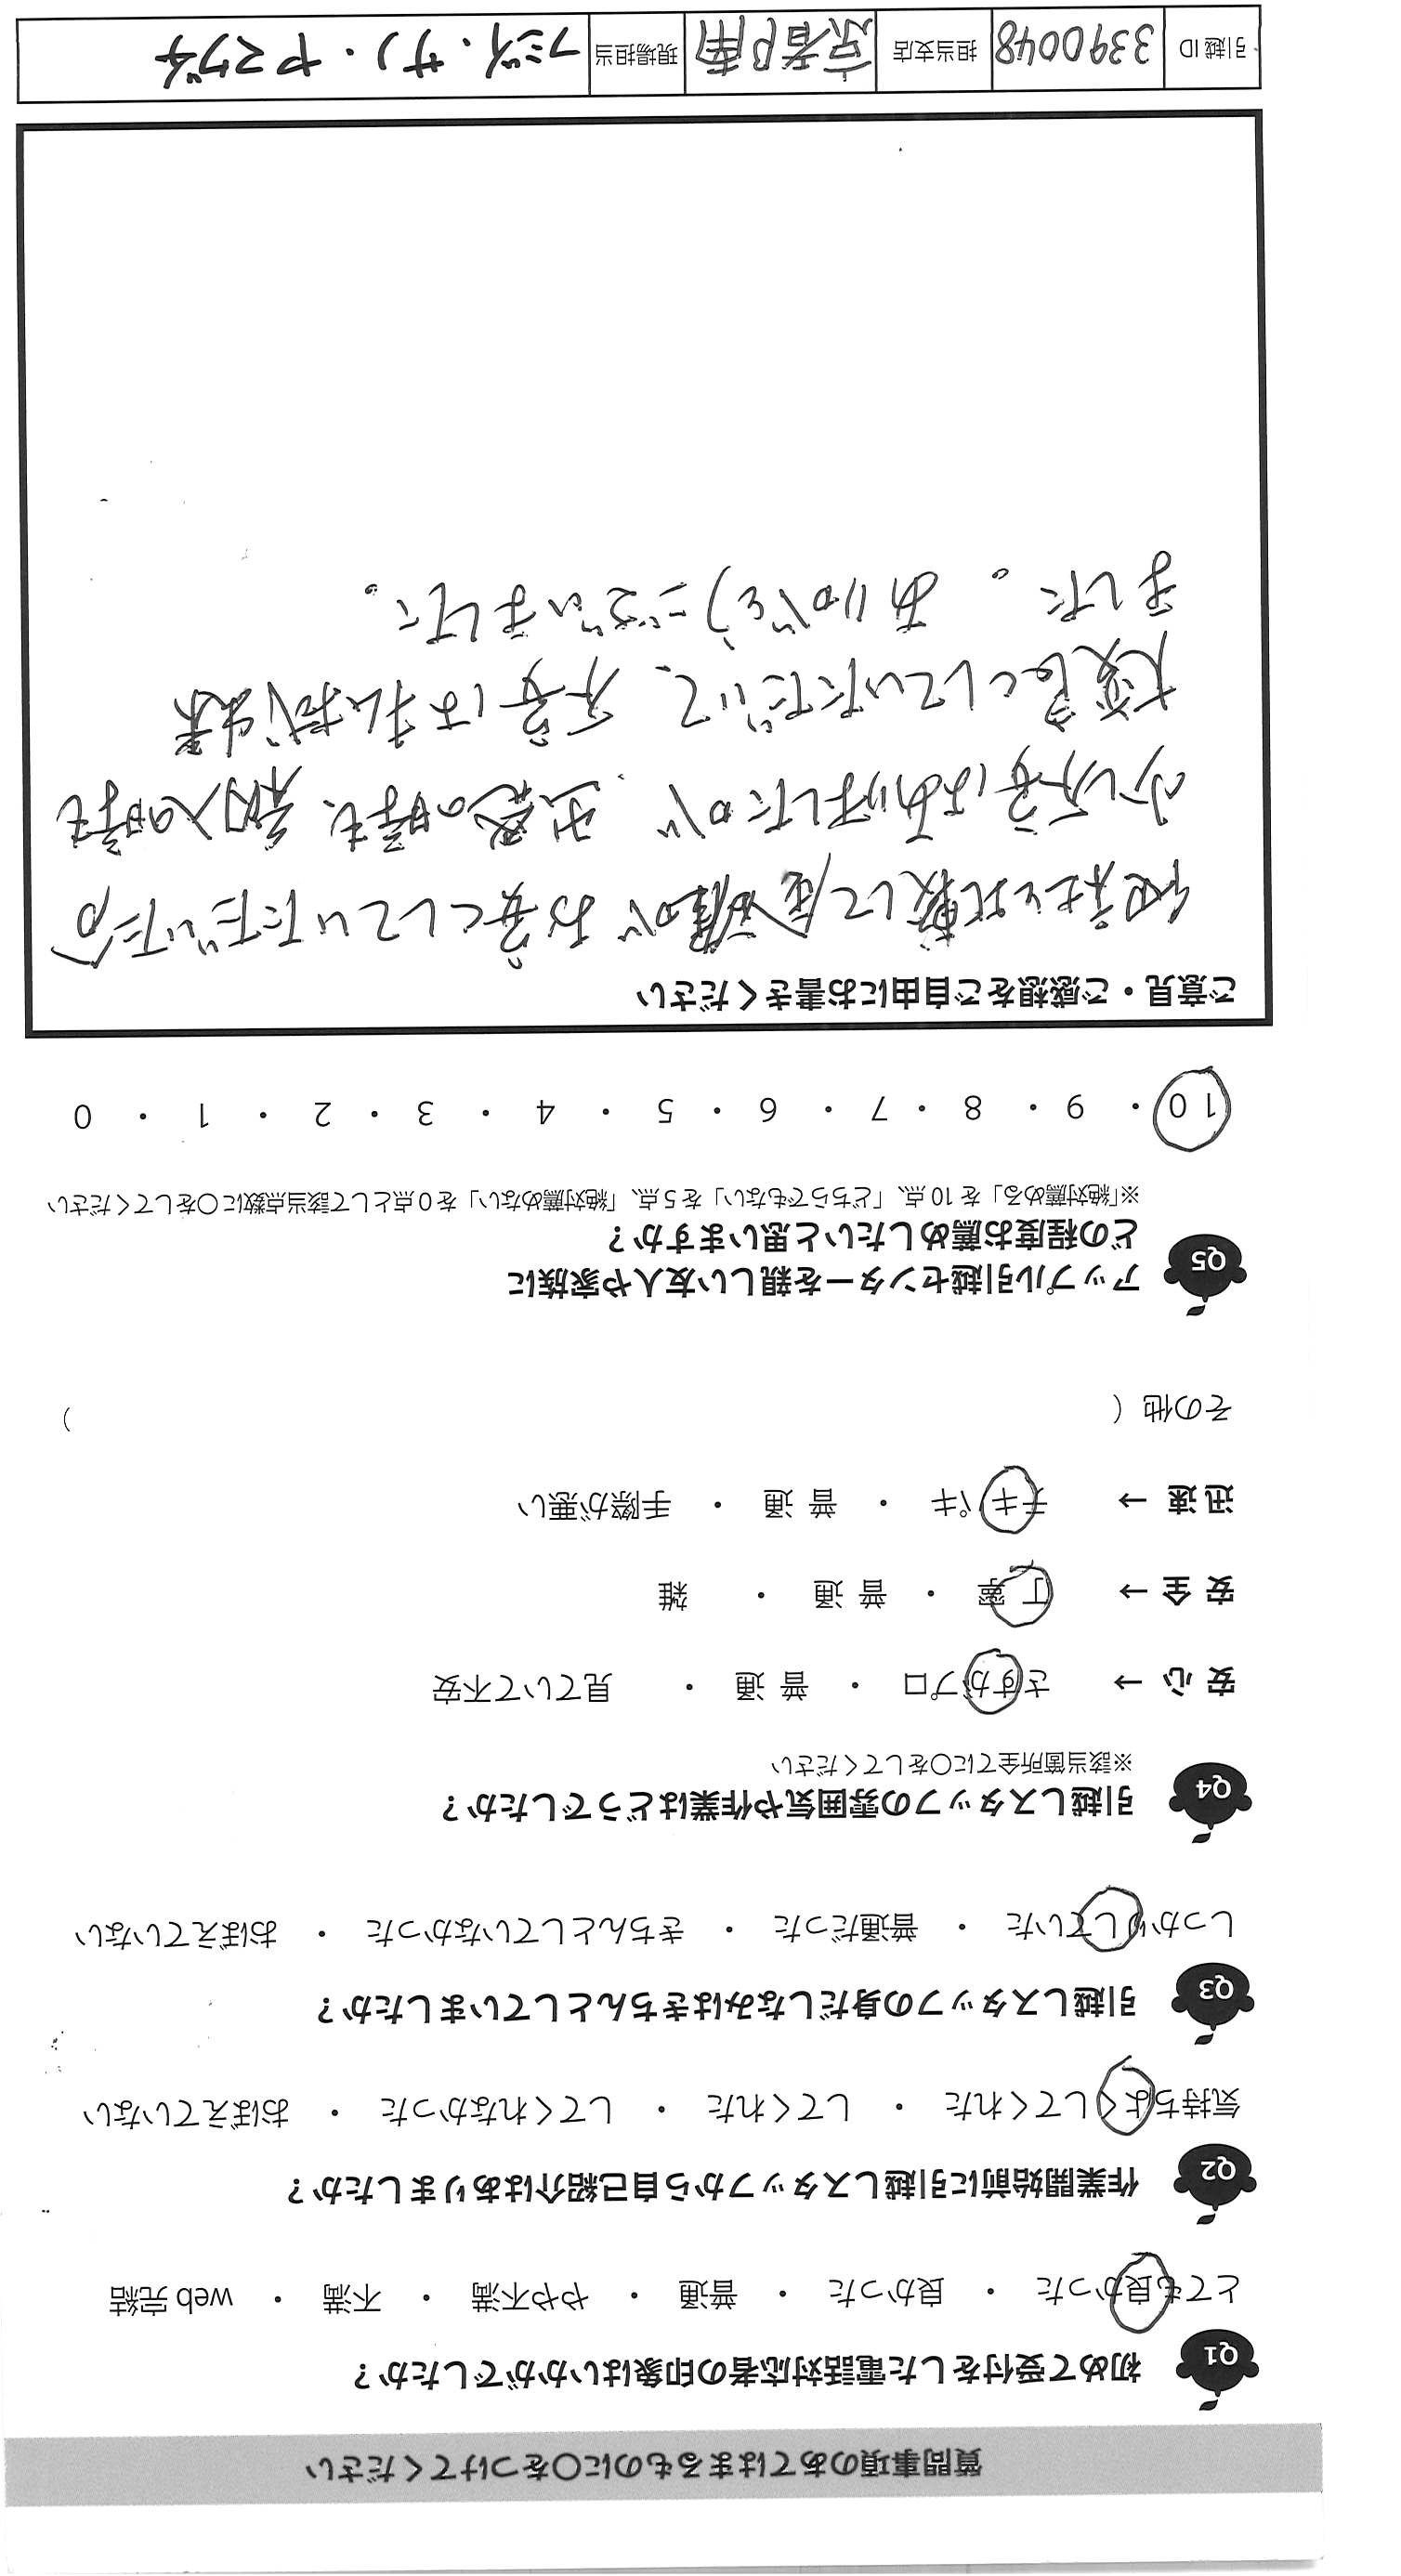 質問事項のあてはまるものに〇をつけてください
Q1 初めて受付をした電話対応者の印象はいかがでしたか？
とても良かった ・ 良かった ・ 普通 ・ やや不満 ・ 不満 ・ web 完結
Q2 作業開始前に引越しスタッフから自己紹介はありましたか？
気持ちよくしてくれた ・ してくれた ・ してくれなかった ・ おぼえていない
Q3 引越しスタッフの身だしなみはきちんとしていましたか？
しっかりしていた ・ 普通だった ・ きちんとしていなかった ・ おぼえていない
Q4 引越しスタッフの雰囲気や作業はどうでしたか？
※該当箇所全てに〇をしてください
安 心 → さすがプロ ・ 普 通 ・ 見ていて不安
安 全 → 丁 寧 ・ 普 通 ・ 雑
迅 速 → テキパキ ・ 普 通 ・ 手際が悪い
その他（ ）
Q5 アップル引越センターを親しい友人や家族に
どの程度お薦めしたいと思いますか？
※「絶対薦める」を 10 点、「どちらでもない」を 5 点、「絶対薦めない」を 0 点として該当点数に〇をしてください
10 ・ 9 ・ 8 ・ 7 ・ 6 ・ 5 ・ 4 ・ 3 ・ 2 ・ 1 ・ 0
ご意見・ご感想をご自由にお書きください
他社と比較して金額がお安くしていただいた分
少し不安はありましたが、出発の時も、納入の時も
大変良くしていただいて、不安は払拭出来
ました。ありがとうございました。
引越 ID 3390048 担当支店 京都南 現場担当 フジイ・サノ・ヤマグチ